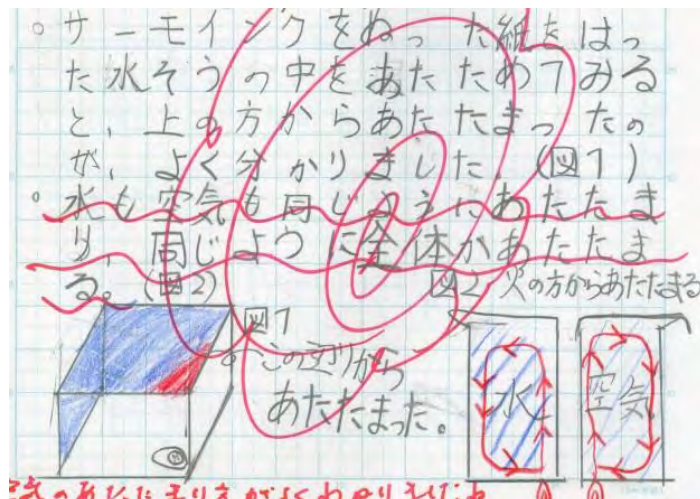 。サーモインクをぬった紙をはっ
た水そうの中をあたためてみる
と、上の方からあたたまったの
が、よく分かりました。(図1)
。水も空気も同じようにあたたま
り、同じように全体があたたま
る。(図2)
図2 火の方からあたたまる
図1
。このまわりから
あたたまった。
水
空気